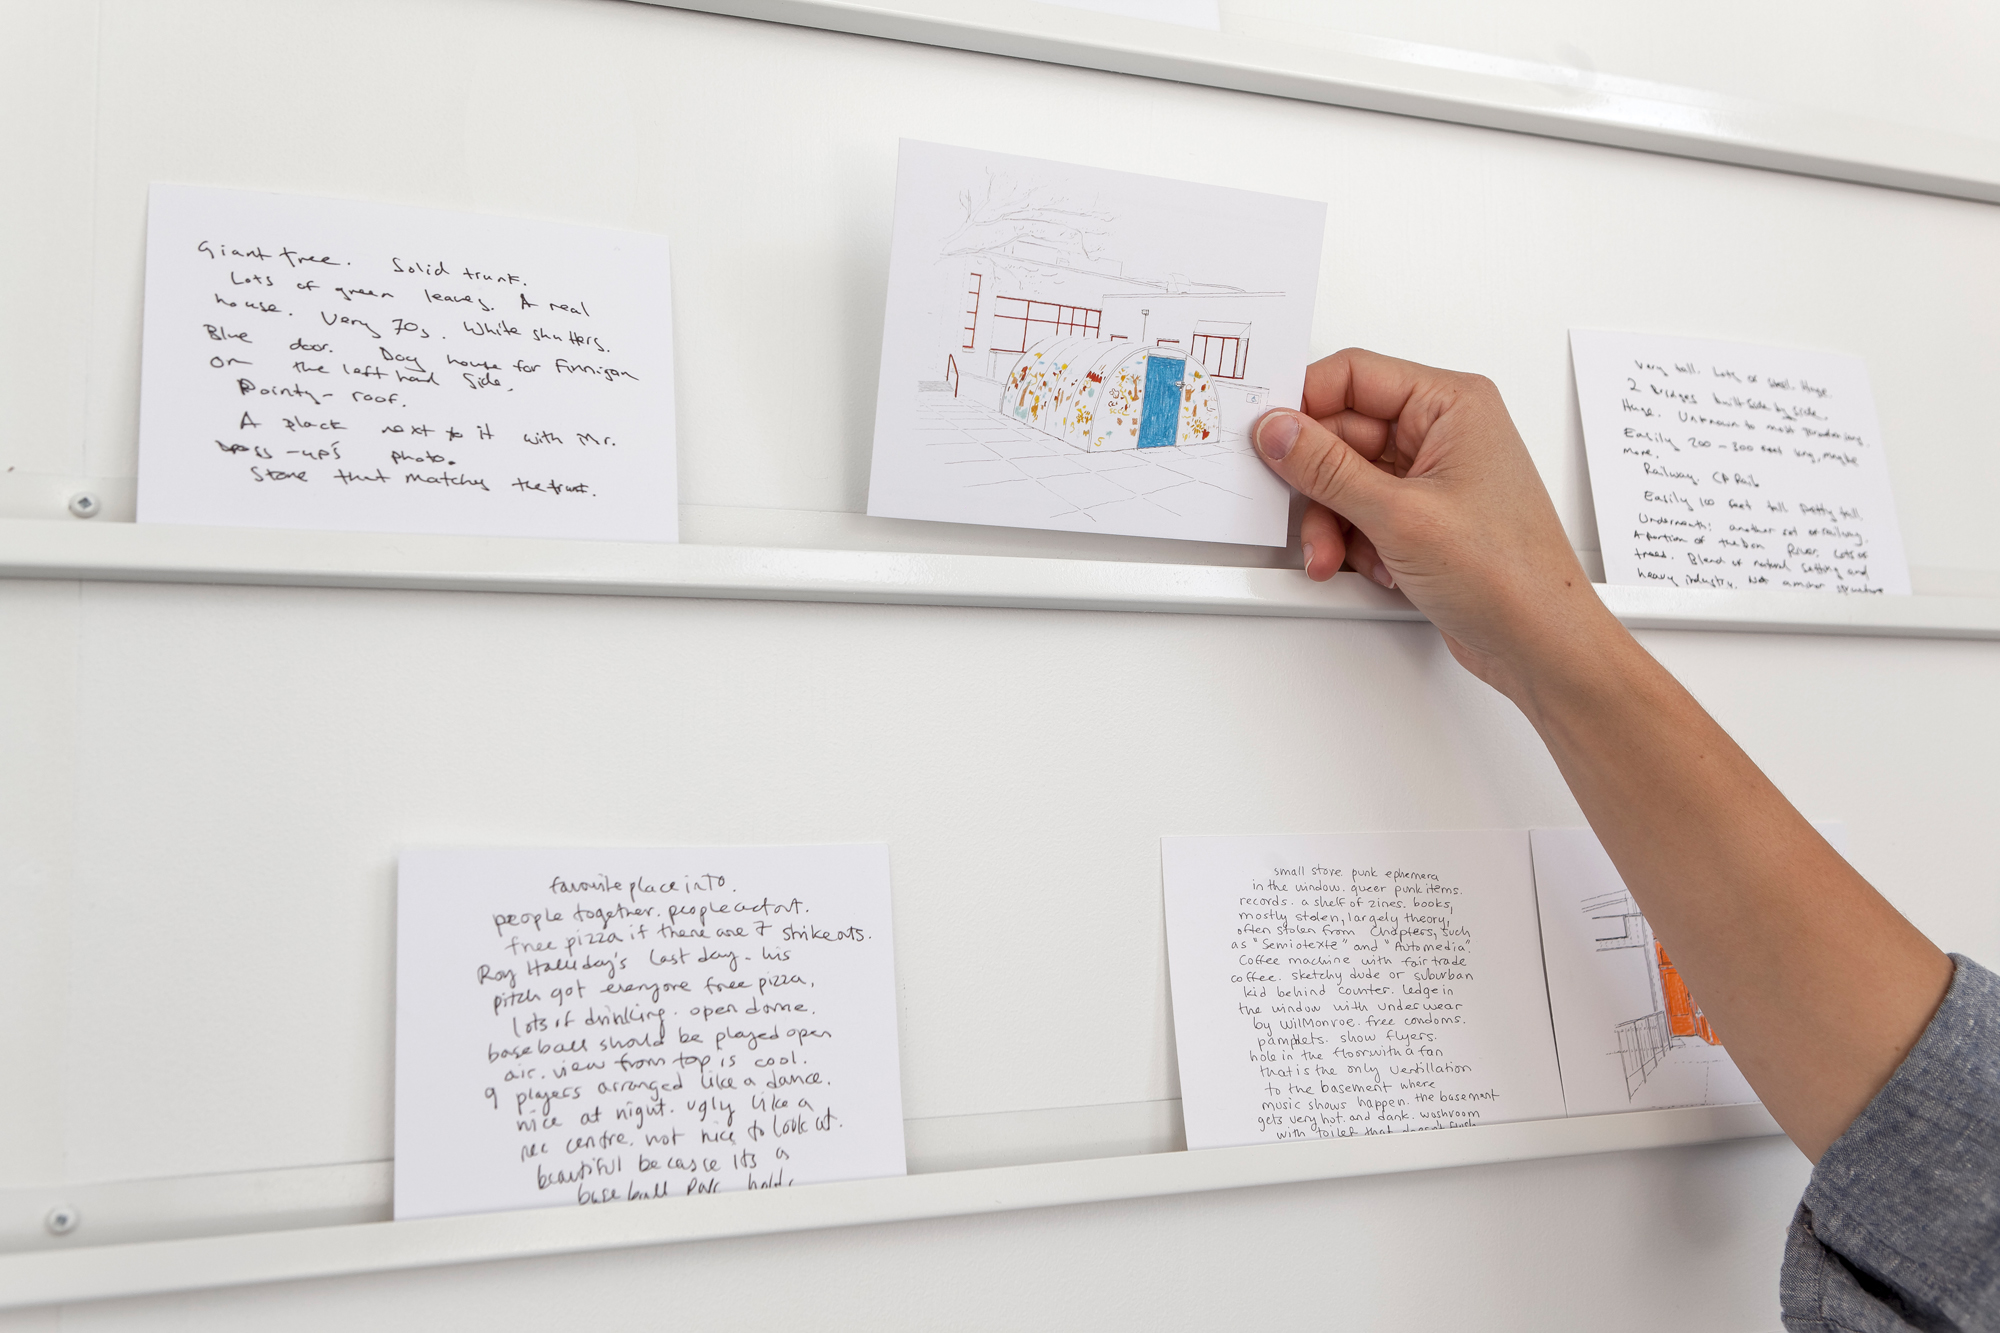 Giant tree. Solid trunk.
Lots of green leaves. A real
house. Very 70s. White shutters.
Blue door. Dog house for Finnigan
on the left hand side.
Pointy-roof.
A plack next to it with Mr.
-up's photo.
Stone that matches the trunk.
Very tall. Lots of steel. Huge.
2 bridges built side by side.
Huge. Unknown to most Torontonians.
Easily 200-300 feet long, maybe
more.
Railway. CP Rail.
Easily 100 feet tall pretty tall.
Underneath: another set of railway.
A portion of the Don River. Lots of
trees. Blend of natural setting and
heavy industry. Not a major structure
favourite place in TO.
people together. people act out.
free pizza if there are 7 strikeouts.
Roy Halliday's last day - his
pitch got everyone free pizza,
lots of drinking. open dome.
baseball should be played open
air. view from top is cool.
9 players arranged like a dance.
nice at night. ugly like a
rec centre. not nice to look at.
beautiful because its a
baseball
small store punk ephemera
in the window. queer punk items.
records. a shelf of zines. books,
mostly stolen, largely theory,
often stolen from Chapters, such
as "Semiotexte" and "Automedia"
Coffee machine with fair trade
coffee. sketchy dude or suburban
kid behind counter. ledge in
the window with underwear
by Wil Monroe. free condoms.
pamphlets. show flyers.
hole in the floor with a fan
that is the only ventillation
to the basement where
music shows happen. the basement
gets very hot. and dank. washroom
with toilet that doesn't flush